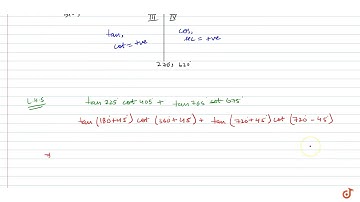 III IV
tan, cos,
cot = +ve sec = +ve
270, 630
L.H.S tan 225 cot 405 + tan 765 cot 675
tan (180+45) cot (360+45) + tan (720+45) cot (720-45)